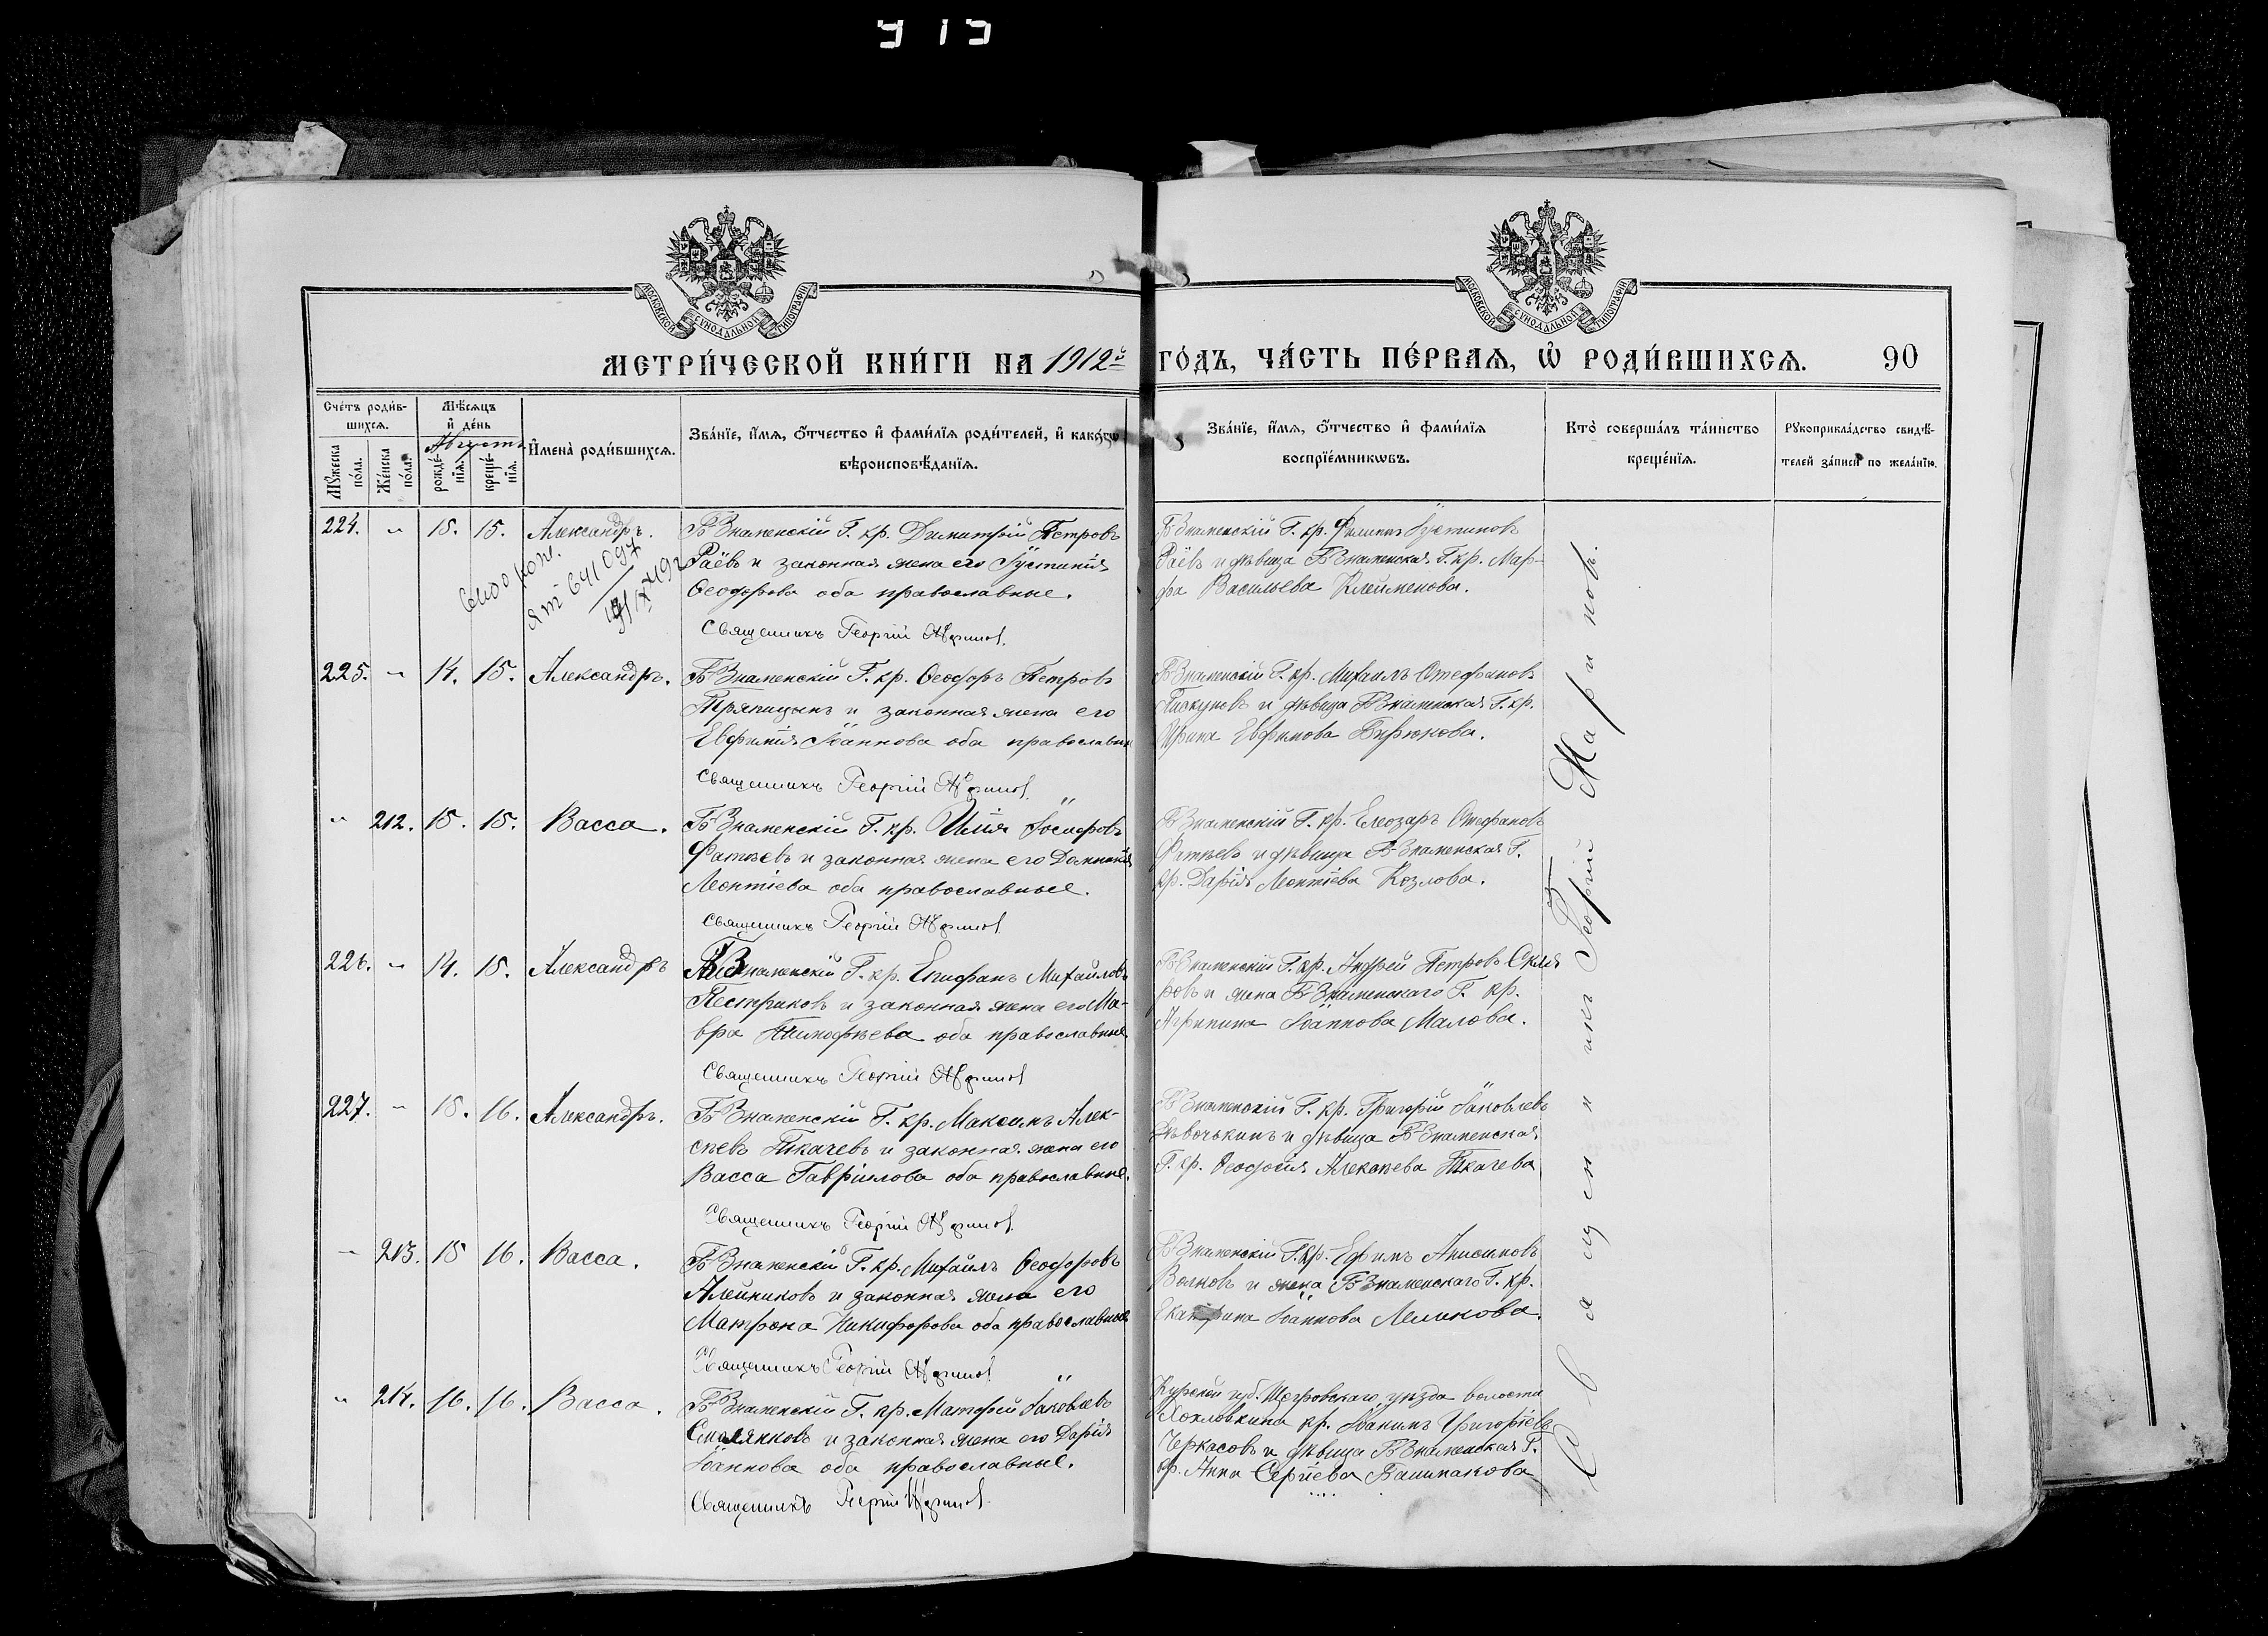 МОСКОВСКОЙ СУНОДАЛЬНОЙ ТИПОГРАФІИ
МОСКОВСКОЙ СУНОДАЛЬНОЙ ТИПОГРАФІИ
МЕТРИ́ЧЕСКОЙ КНИ́ГИ НА 1912й ГО́ДЪ, ЧА́СТЬ ПЕ́РВАѦ, Ѽ РОДИ́ВШИХСѦ. 90
Сче́тъ роди́в-
шихсѧ.
Мꙋ́жеска по́ла.
Же́нска по́ла.
Мѣ́сѧцъ
и҆ де́нь
Августъ
рожде́-
нїѧ.
креще́-
нїѧ.
И҆мена̀ роди́вшихсѧ.
Зва́нїе, и҆́мѧ, ѻ҆́тчество и҆ фами́лїѧ роди́телей, и҆ како́гѡ
вѣроисповѣ́данїѧ.
Зва́нїе, и҆́мѧ, ѻ҆́тчество и҆ фами́лїѧ
воспрїе́мникѡвъ.
Кто̀ соверша́лъ та́инство
креще́нїѧ.
Рꙋкоприкла́дство свидѣ́-
телей за́писи по жела́нїю.
224. " 15. 15. Александръ.
Б Знаменскій Г. кр. Димитрій Петровъ
Раёвъ и законная жена его Іустинія
Ѳеодорова оба православные.
Священникъ Георгій
Б Знаменскій Г. кр. Филиппъ Іустиновъ
Раёвъ и дѣвица Б Знаменская Г. кр. Мар-
фа Васильева Клейменова.
225. " 14. 15. Александръ.
Б Знаменскій Г. кр. Ѳеодоръ Петровъ
Тряпицынъ и законная жена его
Евфимія Іоаннова оба православные
Священникъ Георгій
Б Знаменскій Г. кр. Михаилъ Стефановъ
Пискуновъ и дѣвица Б Знаменская Г. кр.
Ирина Евфимова Бирюкова.
" 212. 15. 15. Васса.
Б Знаменскій Г. кр. Илія Іосифовъ
Фатѣевъ и законная жена его Домникія
Леонтіева оба православные.
Священникъ Георгій
Б Знаменскій Г. кр. Елеозаръ Стефановъ
Фатѣевъ и дѣвица Б Знаменская Г.
кр. Дарія Леонтіева Козлова.
226. " 14. 15. Александръ
Б Знаменскій Г. кр. Епифанъ Михайловъ
Пестриковъ и законная жена его Ма-
вра Тимофѣева оба православные
Священникъ Георгій
Б Знаменскій Г. кр. Андрей Петровъ
ровъ и жена Б Знаменскаго Г. кр.
Агрипина Іоаннова Малова.
227. " 15. 16. Александръ.
Б Знаменскій Г. кр. Максимъ Алек-
сѣевъ Ткачевъ и законная жена его
Васса Гавріилова оба православные.
Священникъ Георгій
Б Знаменскій Г. кр. Григорій Іаковлевъ
Дѣвочькинъ и дѣвица Б Знаменская
Г. кр. Ѳеодосія Алексѣева Ткачева
" 213. 15 16. Васса.
Б Знаменскій Г. кр. Михаилъ Ѳеодоровъ
Алейниковъ и законная жена его
Матрона Никифорова оба православные
Священникъ Георгій
Б Знаменскій Г. кр. Ефимъ Анисимовъ
Волковъ и жена Б Знаменскаго Г. кр.
Екатерина Іоаннова
" 214. 16. 16. Васса.
Б Знаменскій Г. кр. Матѳей Іаковлевъ
и законная жена его Дарія
Іоаннова оба православные.
Священникъ Георгій
Курской губ. Щигровскаго уѣзда волости
кр. Іоакимъ Григоріевъ
Черкасовъ и дѣвица Б Знаменская Г.
кр. Анна Сергіева
Священникъ Георгій Мариновъ.